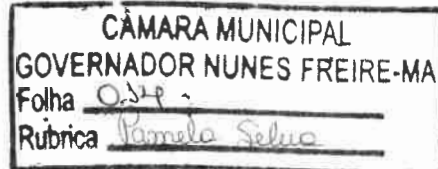 CÂMARA MUNICIPAL
GOVERNADOR NUNES FREIRE-MA
Folha
Rubrica Pamela Selva